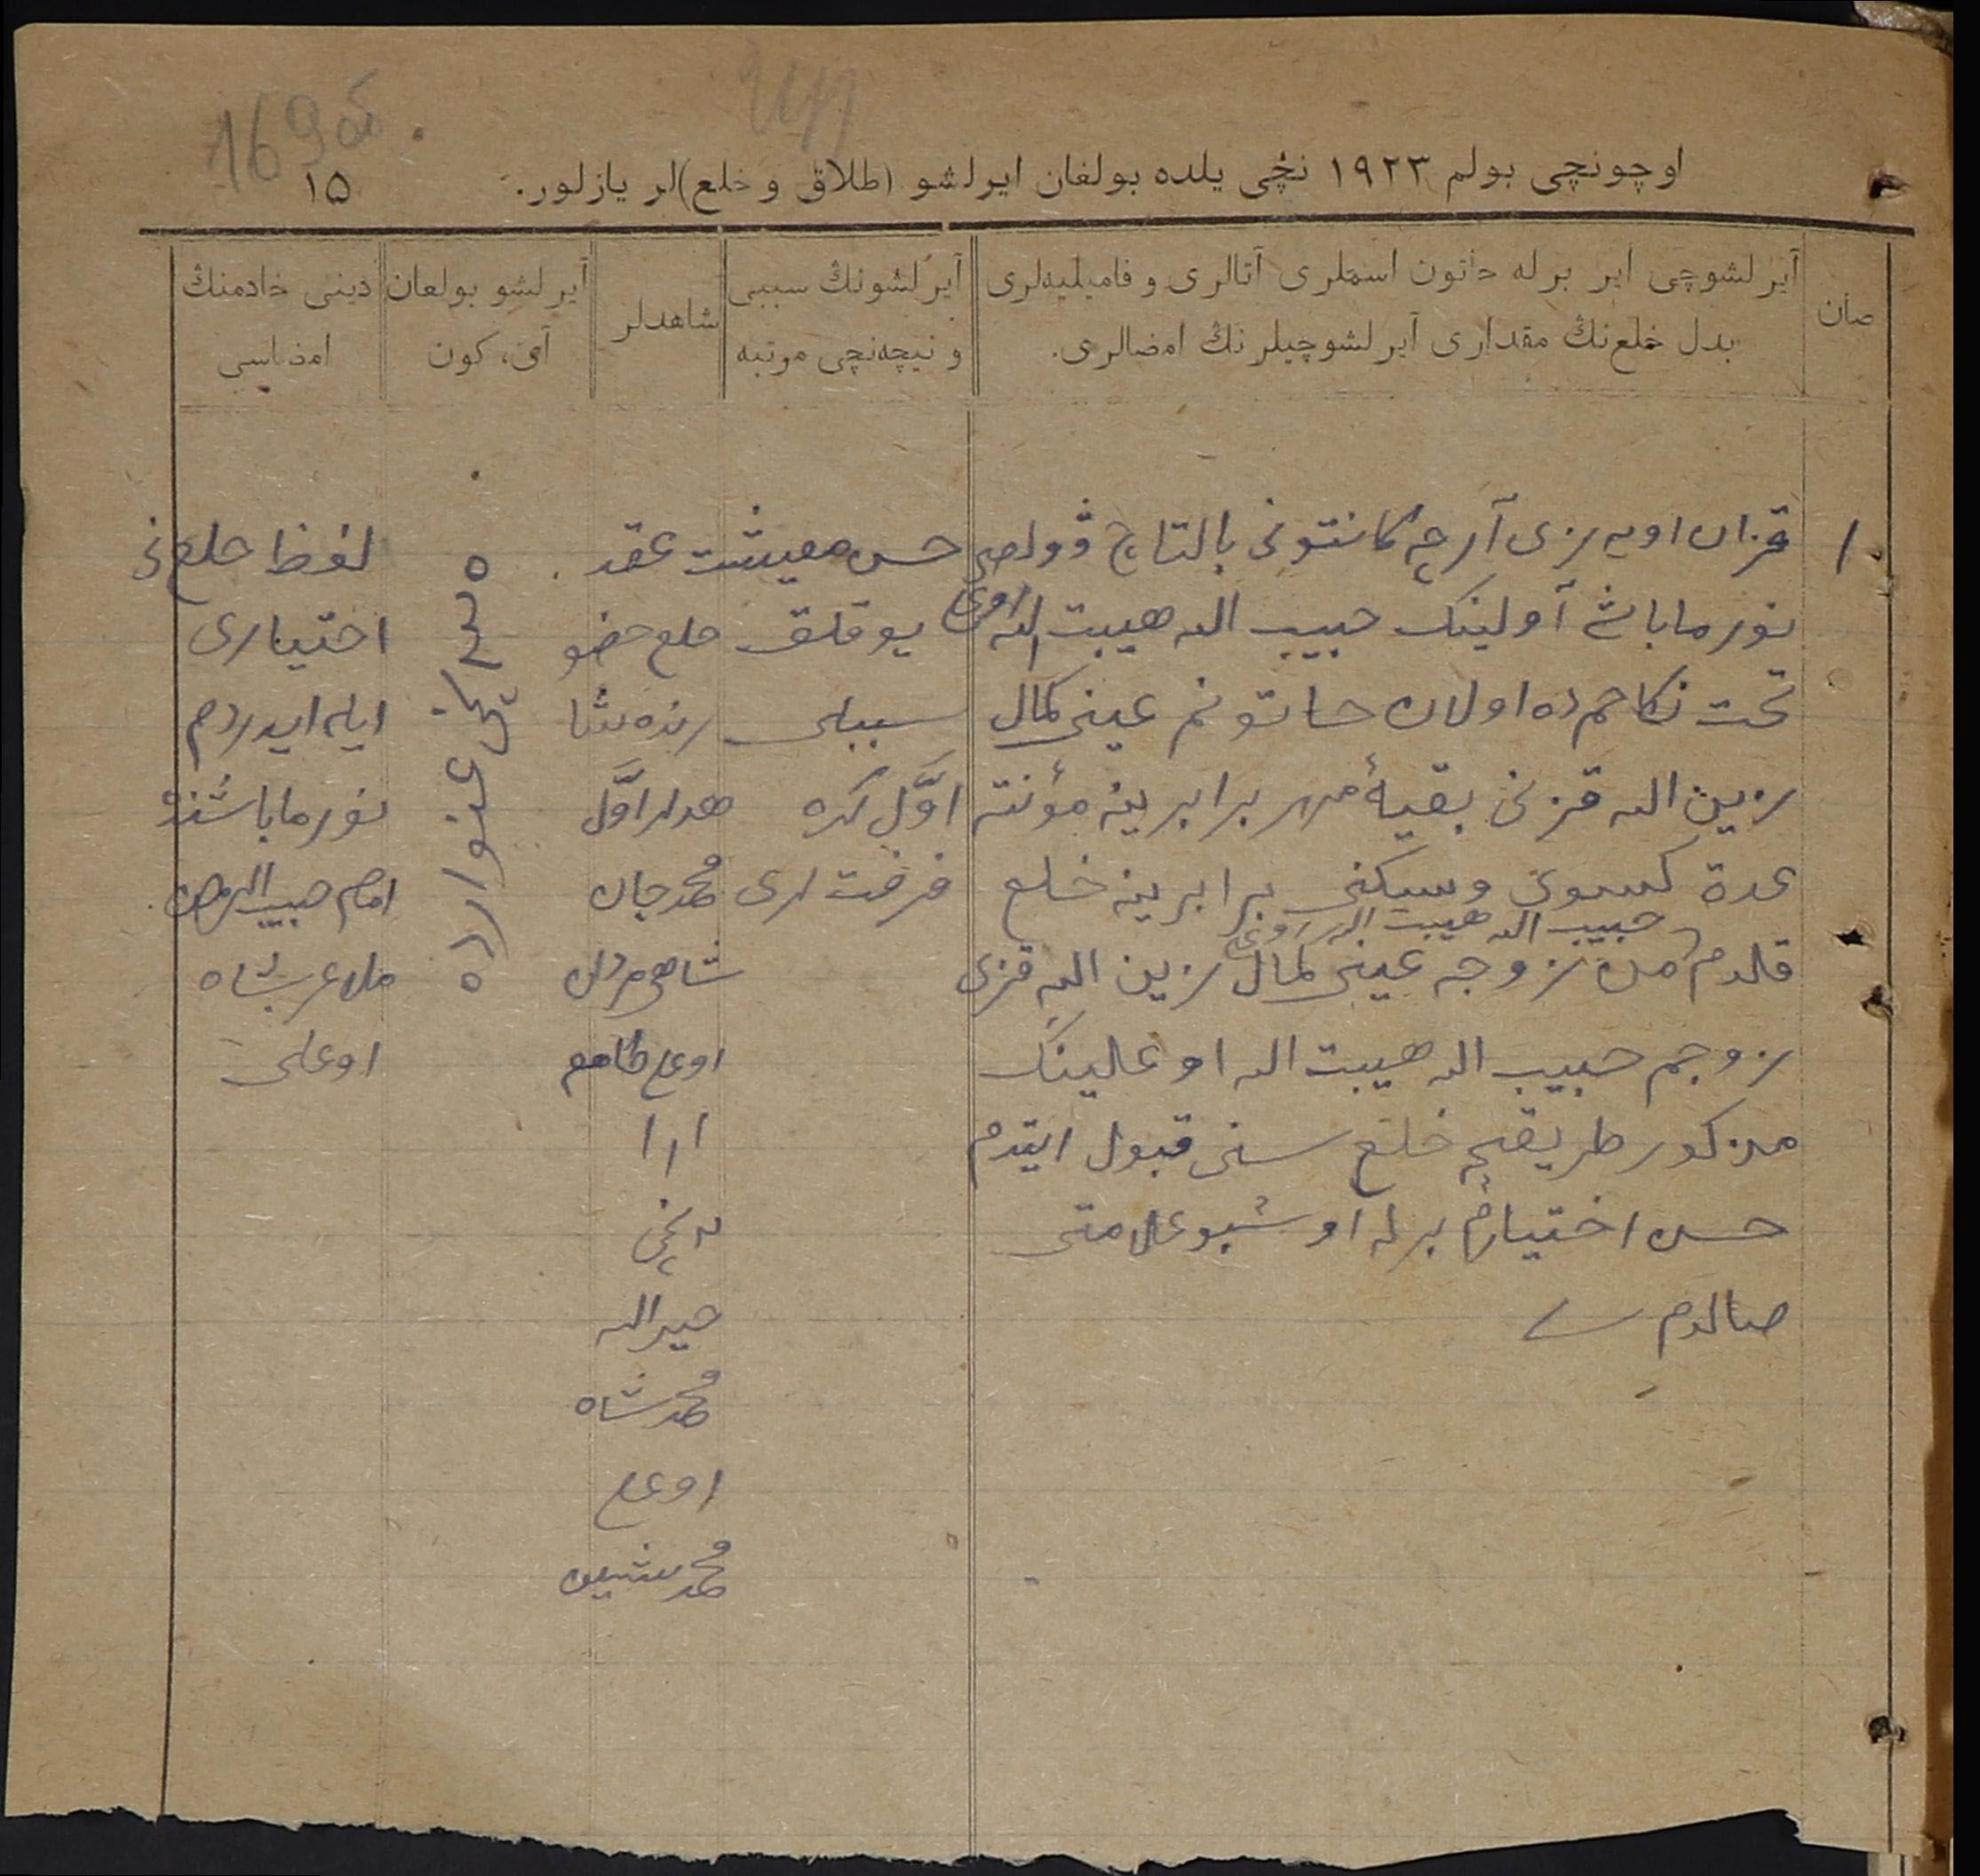 169об.
اوچونچی بولم ١٩٢٣ نچی يلده بولغان ايرلشو (طلاق و خلع)لر يازلور.
١٥
صان
آيرلشوچی اير برله خاتون اسملری آتالری و فاميليه‌لری
بدل خلع‌نڭ مقداری آيرلشوچيلرنڭ امضالری.
آيرلشونڭ سببی
و نيچه‌نچی مرتبه
شاهدلر
آيرلشو بولغان
آی، کون
دينی خادمنڭ
امضاسی
١
قزان اویه‌زی آرچه کانتونی بالتاچ ڤولصی
نورما باش آولینڭ حبیب الله هیبت الله اوغلی
تحت نکاحمده اولان خاتونم عینی کمال
زین الله قزنی بقیهٔ مهر برابرینه مؤنته
عدة کسوی وسکنی برابرینه خلع
قلدم من زوجه عینی کمال زین الله قزی
حبیب الله هیبت الله اوغلی
زوجم حبیب الله هیبت الله اوغلینڭ
مذکور طریقچه خلع سنی قبول ایتدم
حسن اختیارم برله اوشبو علامتی
صالدم
حسن معیشت
یوقلق
سببلی
اوّل کره
فرقت لری
عقد
خلع حضو
رنده شا
هدلر اوّل
محمدجان
شاهی مردان
اوغلی
محمدشاه
اوغلی
لفظ خلع نی
اختیاری
ایله ایدردم
نورما باش
امام حبیب الرحمن
ملا عربشاه
اوغلی